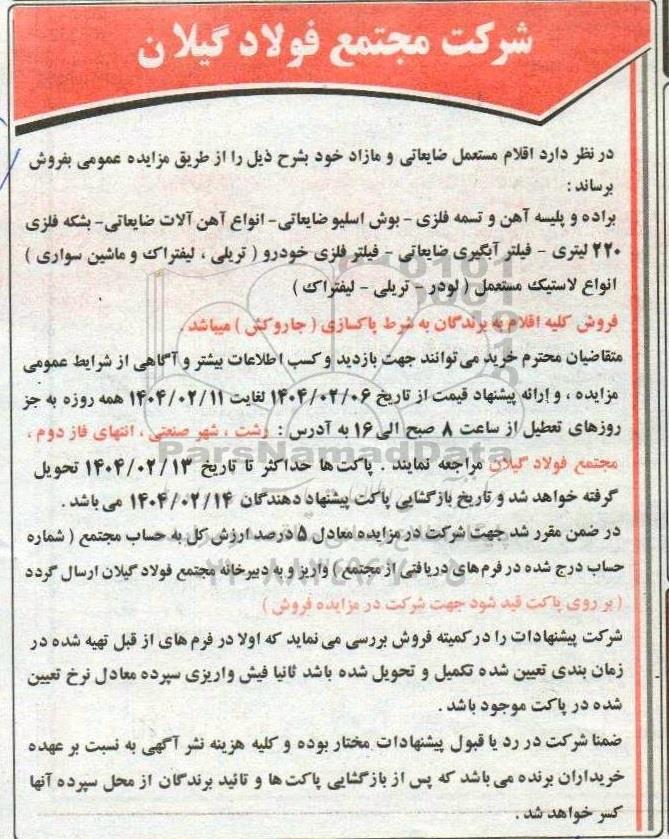 شرکت مجتمع فولاد گیلان
در نظر دارد اقلام مستعمل ضایعاتی و مازاد خود بشرح ذیل را از طریق مزایده عمومی بفروش
برساند :
براده و پلیسه آهن و تسمه فلزی - بوش اسلیو ضایعاتی- انواع آهن آلات ضایعاتی- بشکه فلزی
۲۲۰ لیتری - فیلتر آبگیری ضایعاتی - فیلتر فلزی خودرو ( تریلی ، لیفتراک و ماشین سواری )
انواع لاستیک مستعمل ( لودر - تریلی - لیفتراک )
فروش کلیه اقلام به برندگان به شرط پاکسازی ( جاروکش ) میباشد .
متقاضیان محترم خرید می توانند جهت بازدید و کسب اطلاعات بیشتر و آگاهی از شرایط عمومی
مزایده ، و ارائه پیشنهاد قیمت از تاریخ ۱۴۰۴/۰۲/۰۶ لغایت ۱۴۰۴/۰۲/۱۱ همه روزه به جز
روزهای تعطیل از ساعت ۸ صبح الی ۱۶ به آدرس : رشت ، شهر صنعتی ، انتهای فاز دوم ،
مجتمع فولاد گیلان مراجعه نمایند . پاکت ها حداکثر تا تاریخ ۱۴۰۴/۰۲/۱۳ تحویل
گرفته خواهد شد و تاریخ بازگشایی پاکت پیشنهاد دهندگان ۱۴۰۴/۰۲/۱۴ می باشد .
در ضمن مقرر شد جهت شرکت در مزایده معادل ۵ درصد ارزش کل به حساب مجتمع ( شماره
حساب درج شده در فرم های دریافتی از مجتمع ) واریز و به دبیرخانه مجتمع فولاد گیلان ارسال گردد
( بر روی پاکت قید شود جهت شرکت در مزایده فروش )
شرکت پیشنهادات را در کمیته فروش بررسی می نماید که اولا در فرم های از قبل تهیه شده در
زمان بندی تعیین شده تکمیل و تحویل شده باشد ثانیا فیش واریزی سپرده معادل نرخ تعیین
شده در پاکت موجود باشد .
ضمنا شرکت در رد یا قبول پیشنهادات مختار بوده و کلیه هزینه نشر آگهی به نسبت بر عهده
خریداران برنده می باشد که پس از بازگشایی پاکت ها و تائید برندگان از محل سپرده آنها
کسر خواهد شد .
ParsNamadData